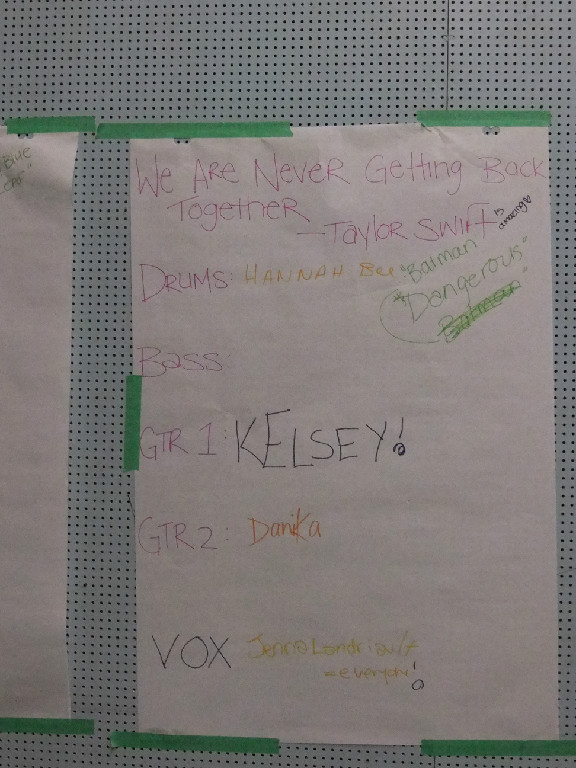 We Are Never Getting Back
Together
—Taylor Swift is amazing
Drums: HANNAH Bee "Batman"
"Dangerous"
Bass
GTR 1: KELSEY!
GTR 2: Danika
VOX Jenna Landriault
=everyone!
Blue